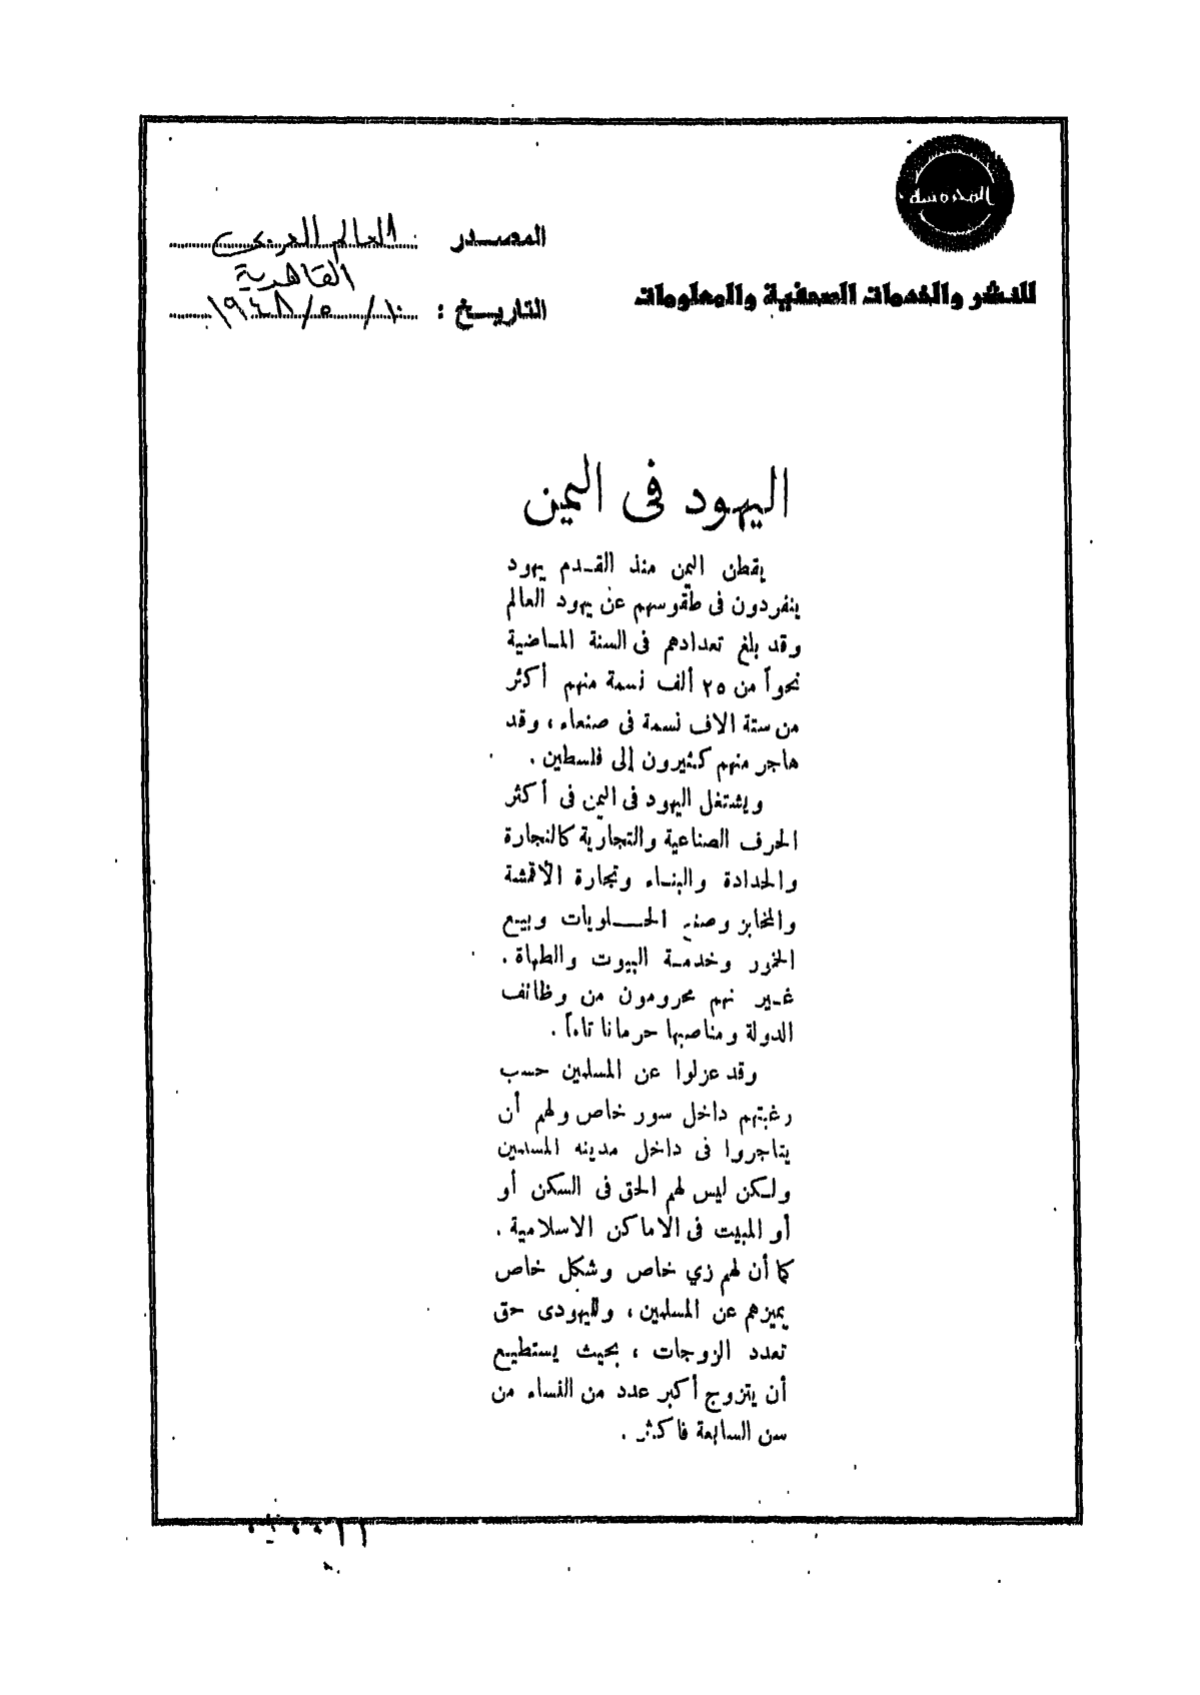 المحروسة
للنشر والخدمات الصحفية والمعلومات
المصدر العالم العربى
القاهرية
التاريخ : ١٠/٥/١٩٤٨
اليهود فى اليمن
يقطن اليمن منذ القدم يهود
ينفردون فى طقوسهم عن يهود العالم
وقد بلغ تعدادهم فى السنة الماضية
نحواً من ٢٥ ألف نسمة منهم أكثر
من ستة الاف نسمة فى صنعاء ، وقد
هاجر منهم كثيرون إلى فلسطين .
ويشتغل اليهود فى اليمن فى أكثر
الحرف الصناعية والتجارية كالنجارة
والحدادة والبناء وتجارة الأقمشة
والمخابز وصنع الحلويات وبيع
الخمور وخدمة البيوت والطهاة .
غير نهم محرومون من وظائف
الدولة ومناصبها حرمانا تاماً .
وقد عزلوا عن المسلمين حسب
رغبتهم داخل سور خاص ولهم أن
يتاجروا فى داخل مدينه المسلمين
ولكن ليس لهم الحق فى السكن أو
أو المبيت فى الاماكن الاسلامية .
كما أن لهم زي خاص وشكل خاص
يميزهم عن المسلمين ، ولليهودى حق
تعدد الزوجات ، بحيث يستطيع
أن يتزوج أكبر عدد من النساء من
سن السابعة فاكثر .